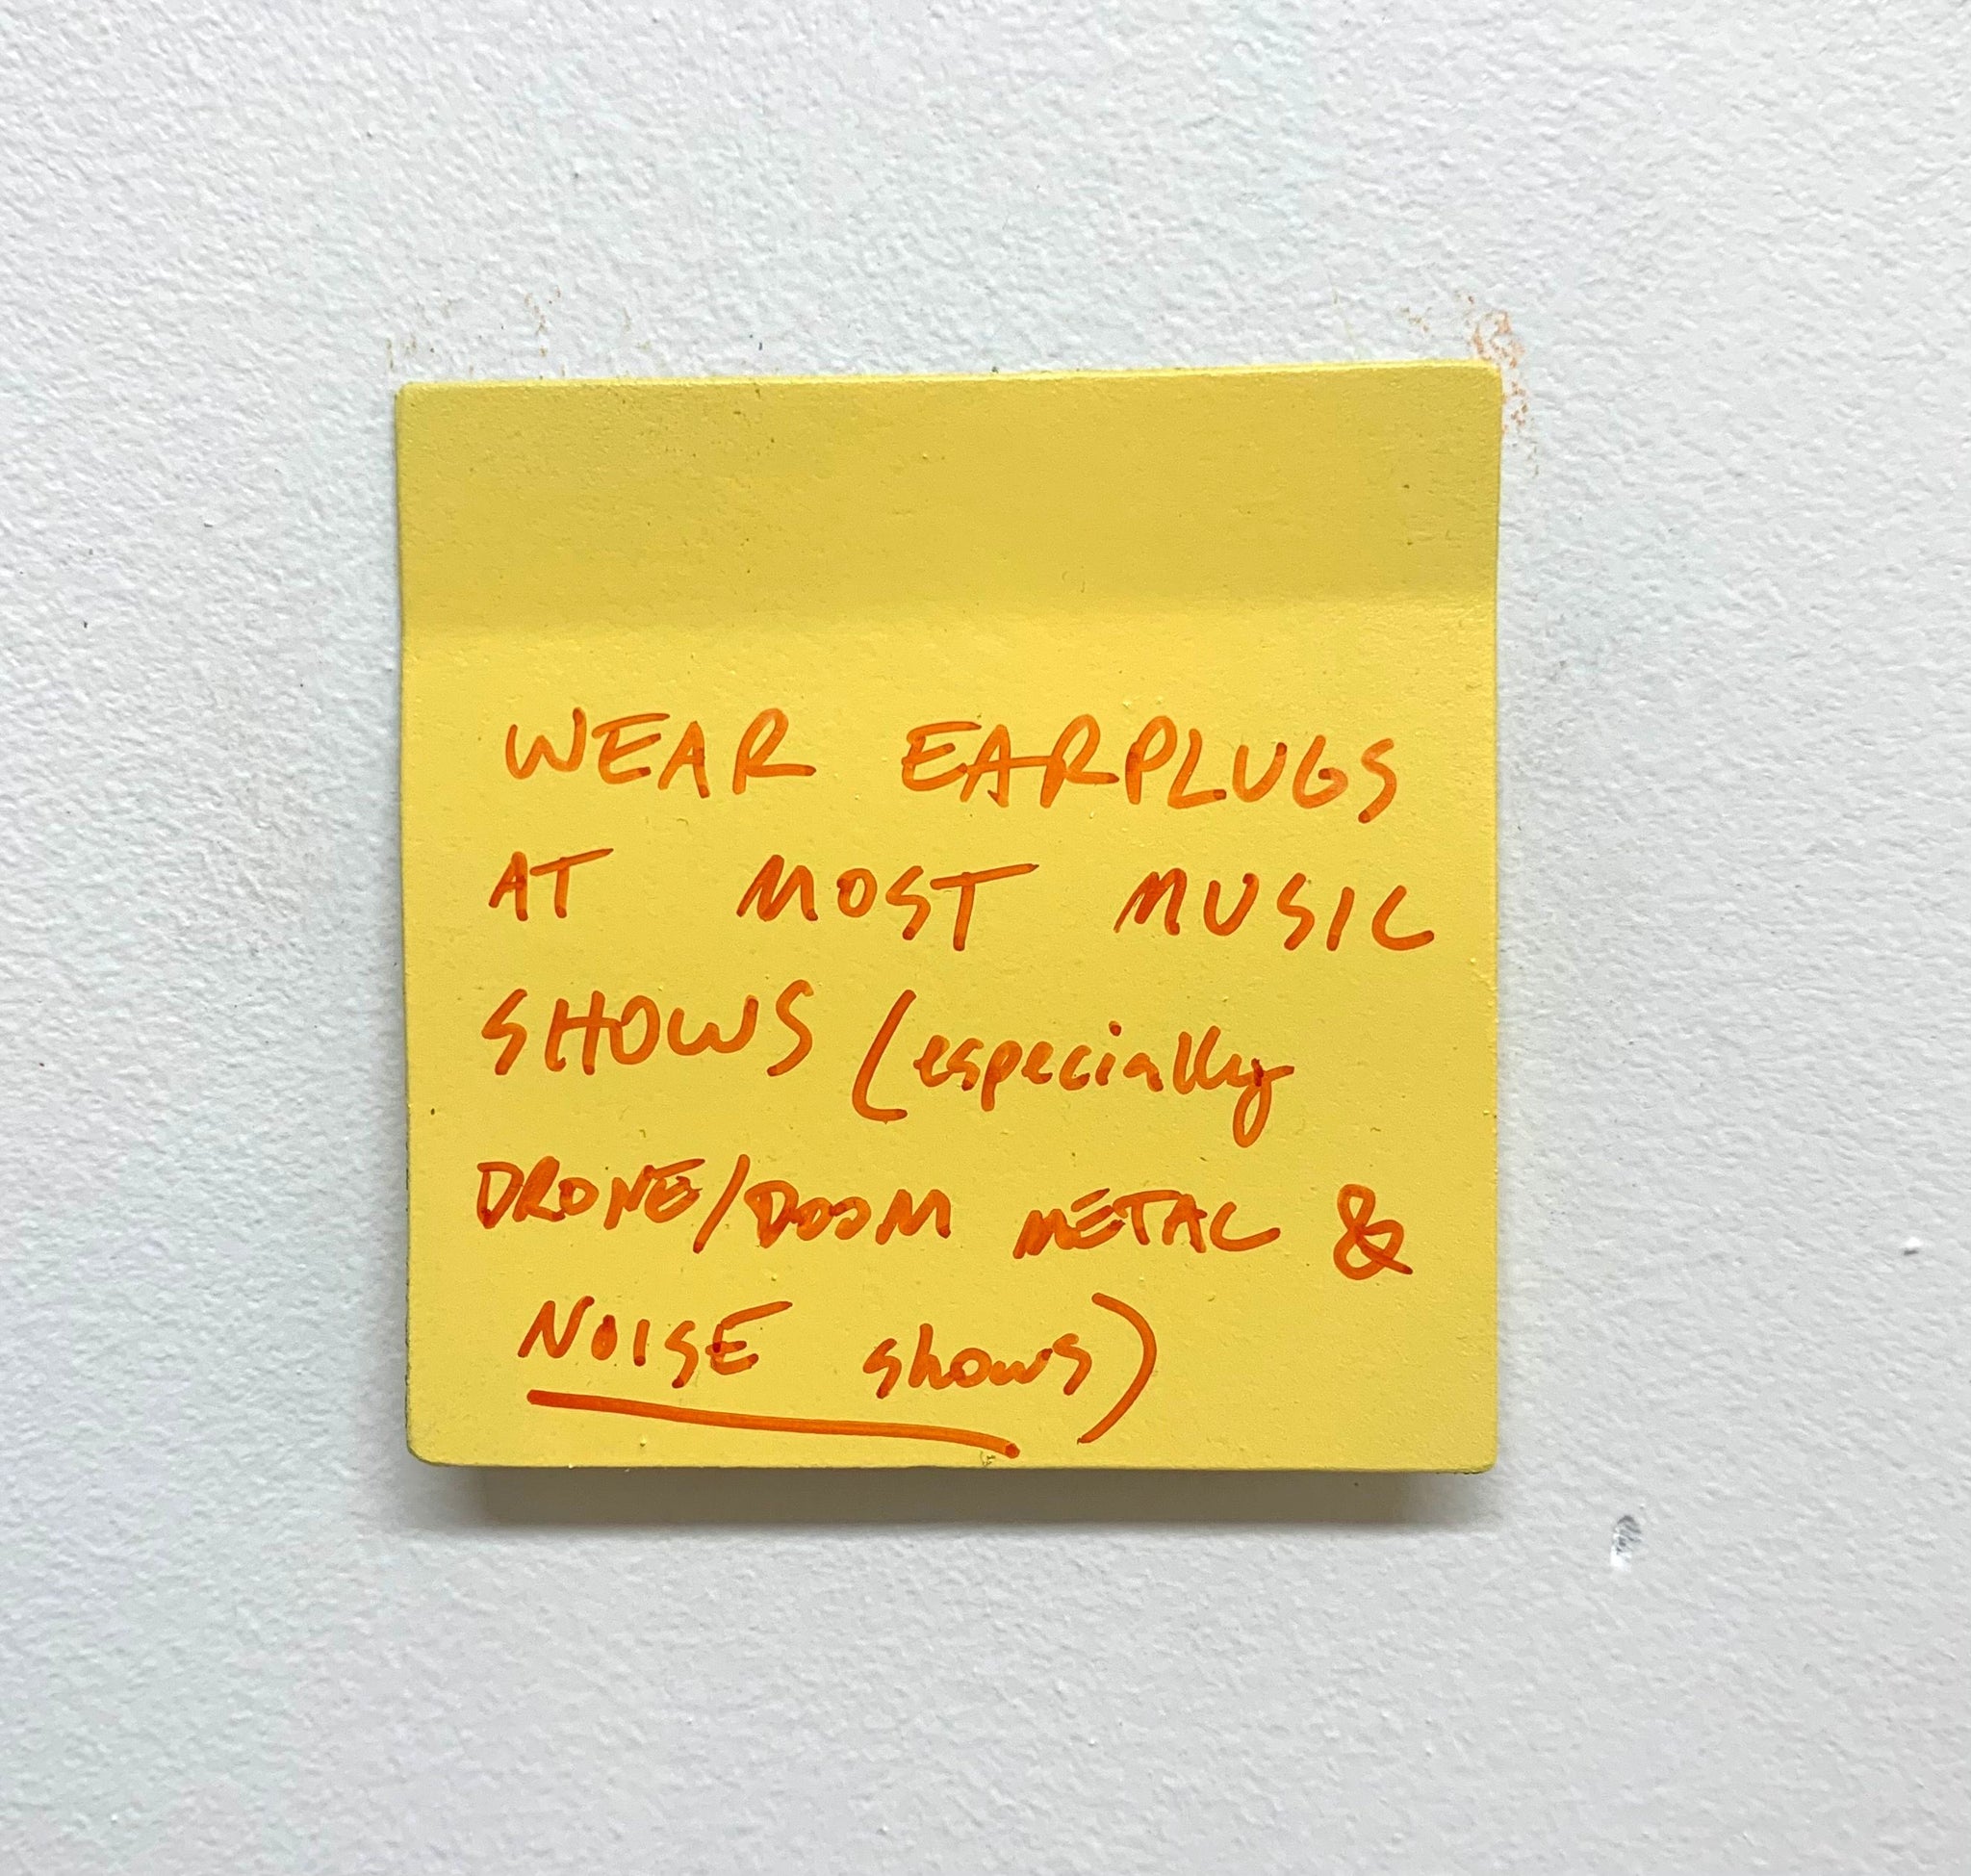 WEAR EARPLUGS
AT MOST MUSIC
SHOWS (especially
DRONE/DOOM METAL &
NOISE shows)